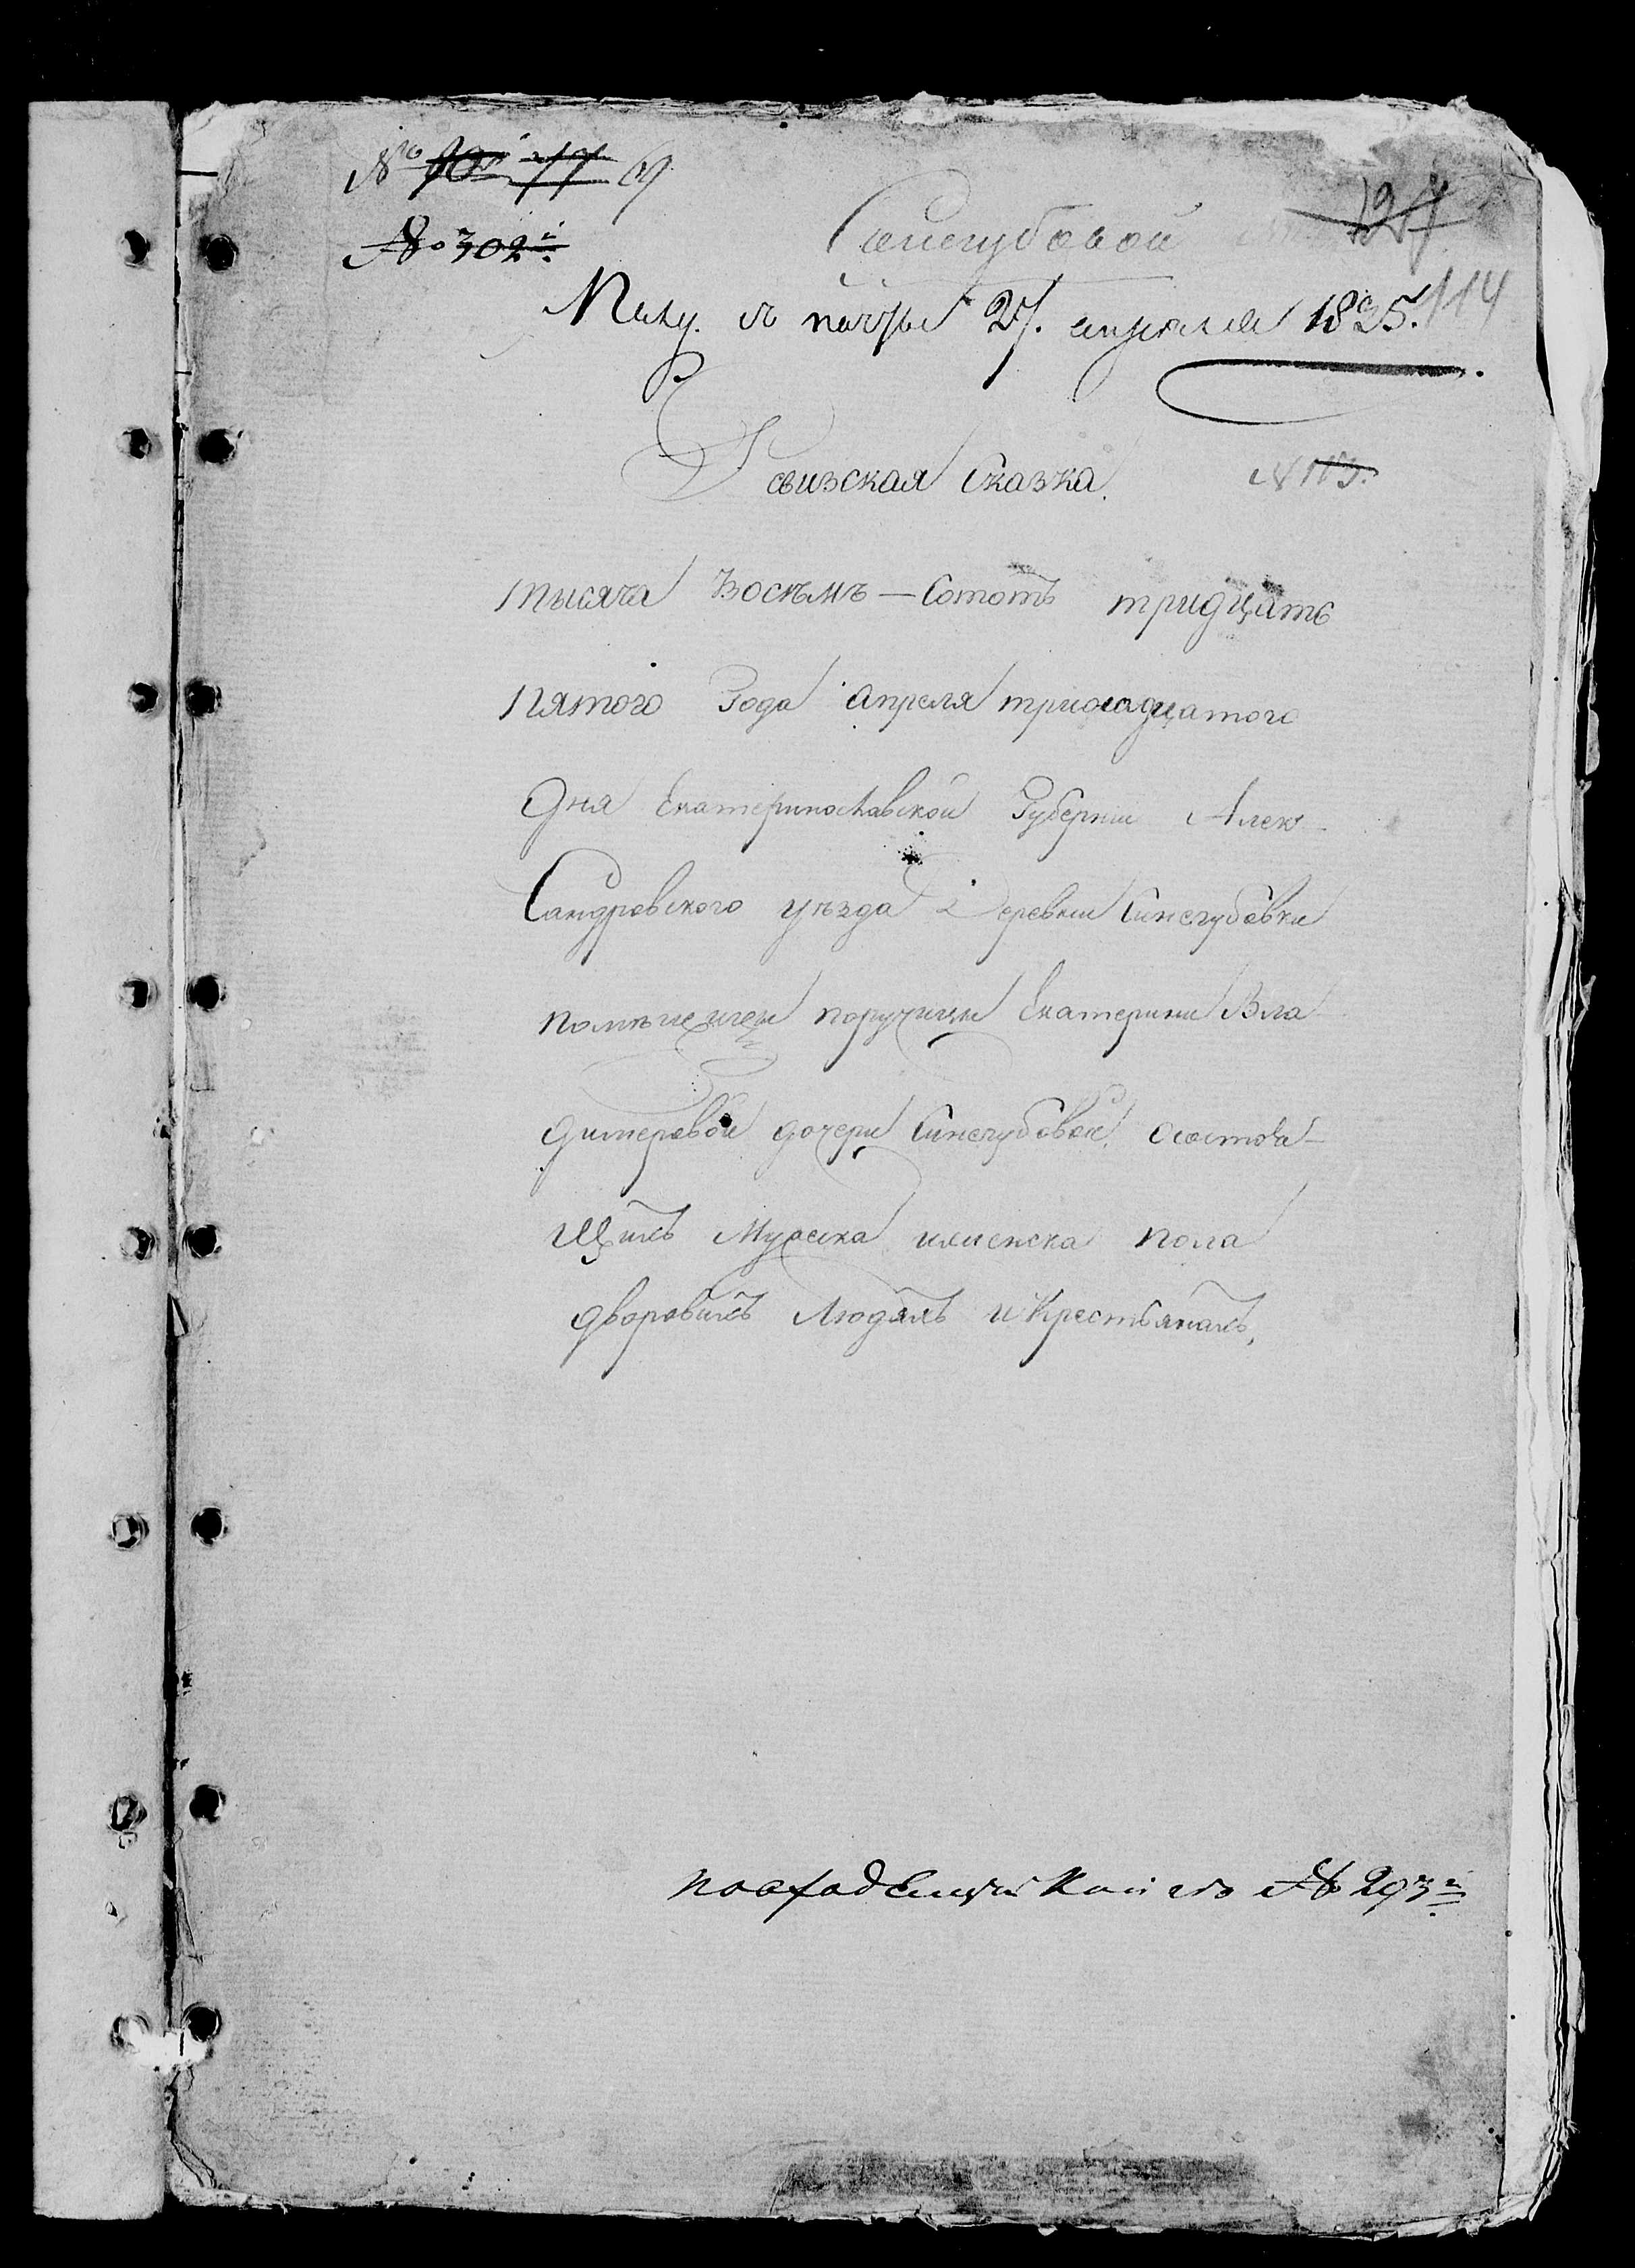 № 90 77 69.
№ 302й
Синегубовой 127
Полу. съ почты 27. апреля 1835. 114
Ревизская Сказка. № 113.
тысяча Восемъ-Сототъ тридцать
Пятого Года апреля тринадцатого
Дня Екатеринославской Губернии Алек-
Сандровского уезда Деревни Синегубовки
помѣщицы поручицы Екатерины Вла
димеровой дочери Синегубовой, Осостоя-
Щихъ Мужеска иженска пола
дворовыхъ Людяхъ и Крестьянахъ,
№ 293й